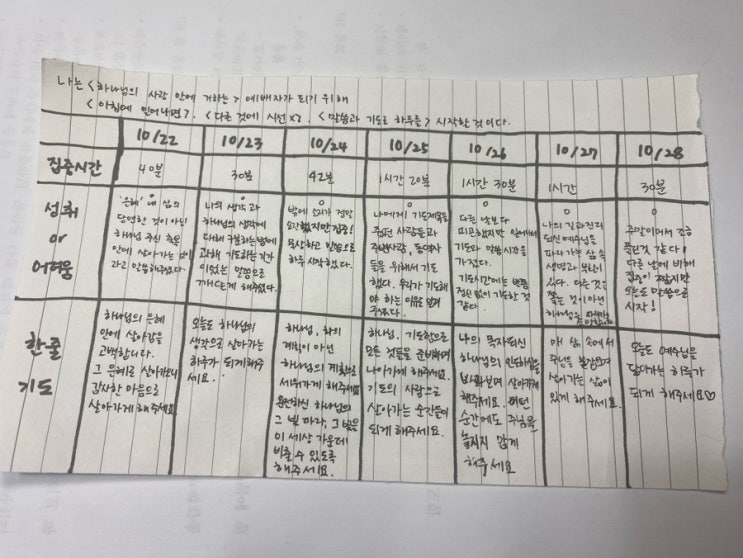 나는 <하나님의 사랑 안에 거하는> 예배자가 되기 위해
<아침에 일어나면>, <다른 것에 시선 x>, <말씀과 기도로 하루를> 시작할 것이다.
10/22 10/23 10/24 10/25 10/26 10/27 10/28
집중시간 40분 30분 42분 1시간 20분 1시간 30분 1시간 30분
성취
or
어려움
'은혜' 내 삶의
당연한 것이 아닌
하나님 주신 축복
안에 살아가는
라고 말씀해주셨다.
나의 생각과
하나님의 생각에
대해
기도하는 기간
이었는 말씀으로
깨닫게 해주셨다.
밤에 소리가 정말
소란했지만 집중!
묵상하고 말씀으로
하루 시작했다.
나에게 기도제목을
줬던 사람들과
주변사람, 동역자
들을 위해서 기도
했다. 우리가 기도해
야 하는 이유를
주셨다.
다른 날보다
피곤했지만
기도와 말씀시간을
가졌다.
기도시간에는
없이 기도한 것
같다.
나의 길과 진리
되신 예수님을
따라가는 삶 속
생명과
있다. 다른 것을
쫓는 것이 아닌
예수님을
주말이어서 조금
풀린것 같다!
다른 날에 비해
집중이 적지만
오늘도 말씀으로
시작!
한줄
기도
하나님의 은혜
안에 살아감을
고백합니다.
그 은혜로 살아가오니
감사한 마음으로
살아가게 해주세요
오늘도 하나님의
생각으로 살아가는
하루가 되게해주
세요.
하나님, 저의
계획이 아닌
하나님의 계획으로
세워가게 해주세요
온전하신 하나님의
그 빛 따라, 그 빛을
이 세상 가운데
비출 수 있도록
해주세요.
하나님, 기도함으로
모든 것들을 준비하며
나아가게 해주세요.
기도의 사람으로
살아가는 순간들이
되게 해주세요.
나의 목자되신
하나님의 인도하심을
바라보며 살아가게
해주세요. 어떤
순간에도 주님을
놓치지 않게
해주세요
매 삶 속에서
주님을
살아가는 삶이
있게 해주세요.
오늘도 예수님을
닮아가는 하루가
되게 해주세요♡